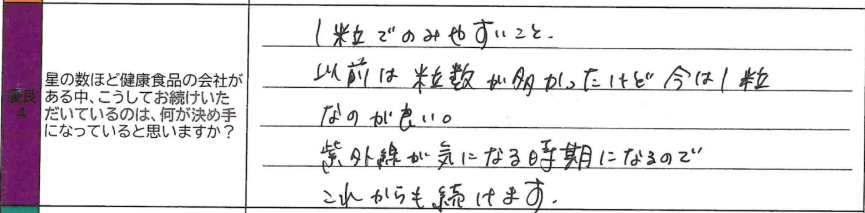 優良
4
星の数ほど健康食品の会社が
ある中、こうしてお続けいた
だいているのは、何が決め手
になっていると思いますか？
1粒でのみやすいこと.
以前は粒数が多かったけど今は1粒
なのが良い。
紫外線が気になる時期になるので
これからも続けます.